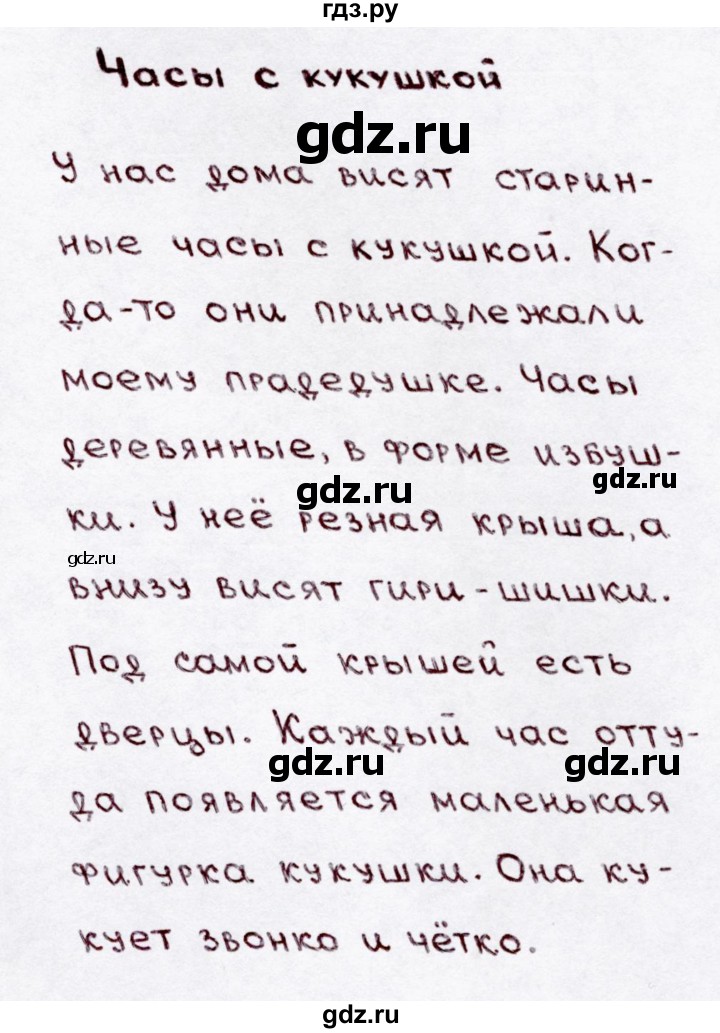 гдз.ру
Часы с кукушкой
gdz.ru
У нас дома висят старин-
ные часы с кукушкой. Ког-
да-то они принадлежали
моему прадедушке. Часы
деревянные, в форме избуш-
gdz.ru
gdz.ru
ки. У неё резная крыша, а
gdz.ru
внизу висят гири-шишки.
Под самой крышей есть
дверцы. Каждый час отту-
gdz.ru
gdz.ru
да появляется маленькая
фигурка кукушки. Она ку-
кует звонко и чётко.
gdz.ru